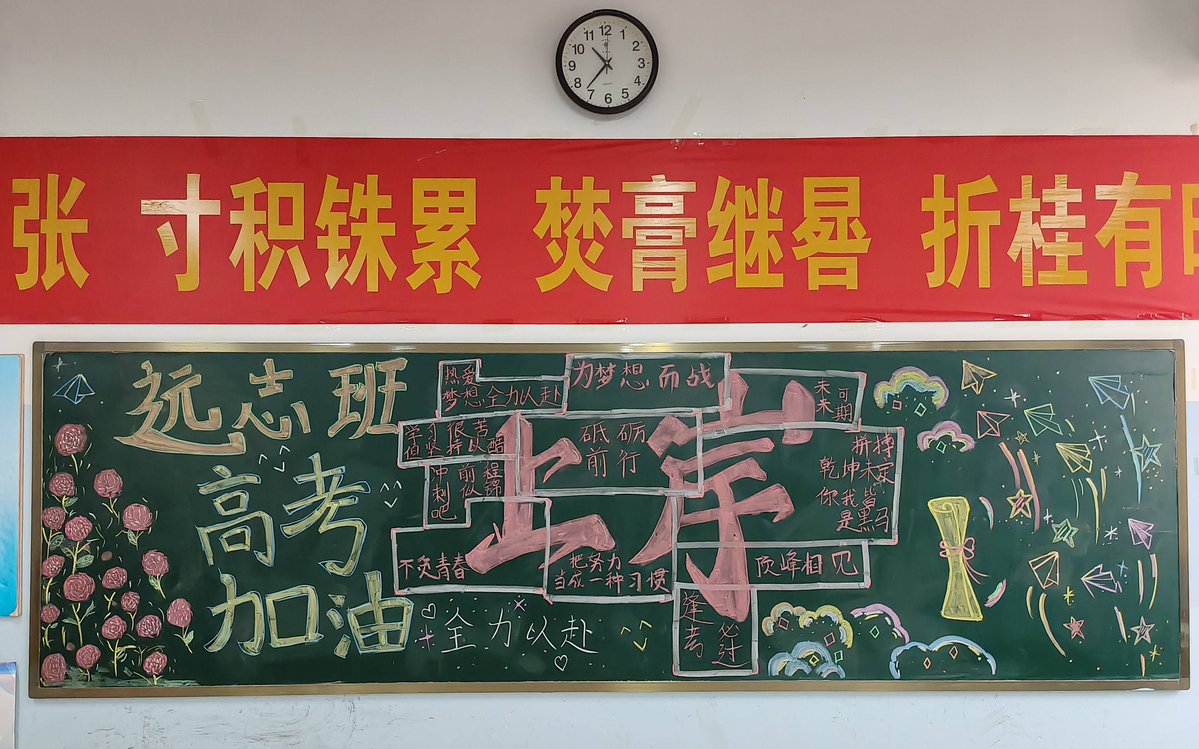 11 12 1
10 2
9 3
8 4
7 6 5
张 寸积铢累 焚膏继晷 折桂有
远志班
高考
加油
热爱
梦想 全力以赴
为梦想而战
未来
可期
学习 很苦
冲刺吧
前程
似锦
砥砺
前行
上岸
拼搏
乾坤未定
你我皆
是黑马
不负青春
把努力
当成一种习惯
顶峰相见
逢考
必过
全力以赴